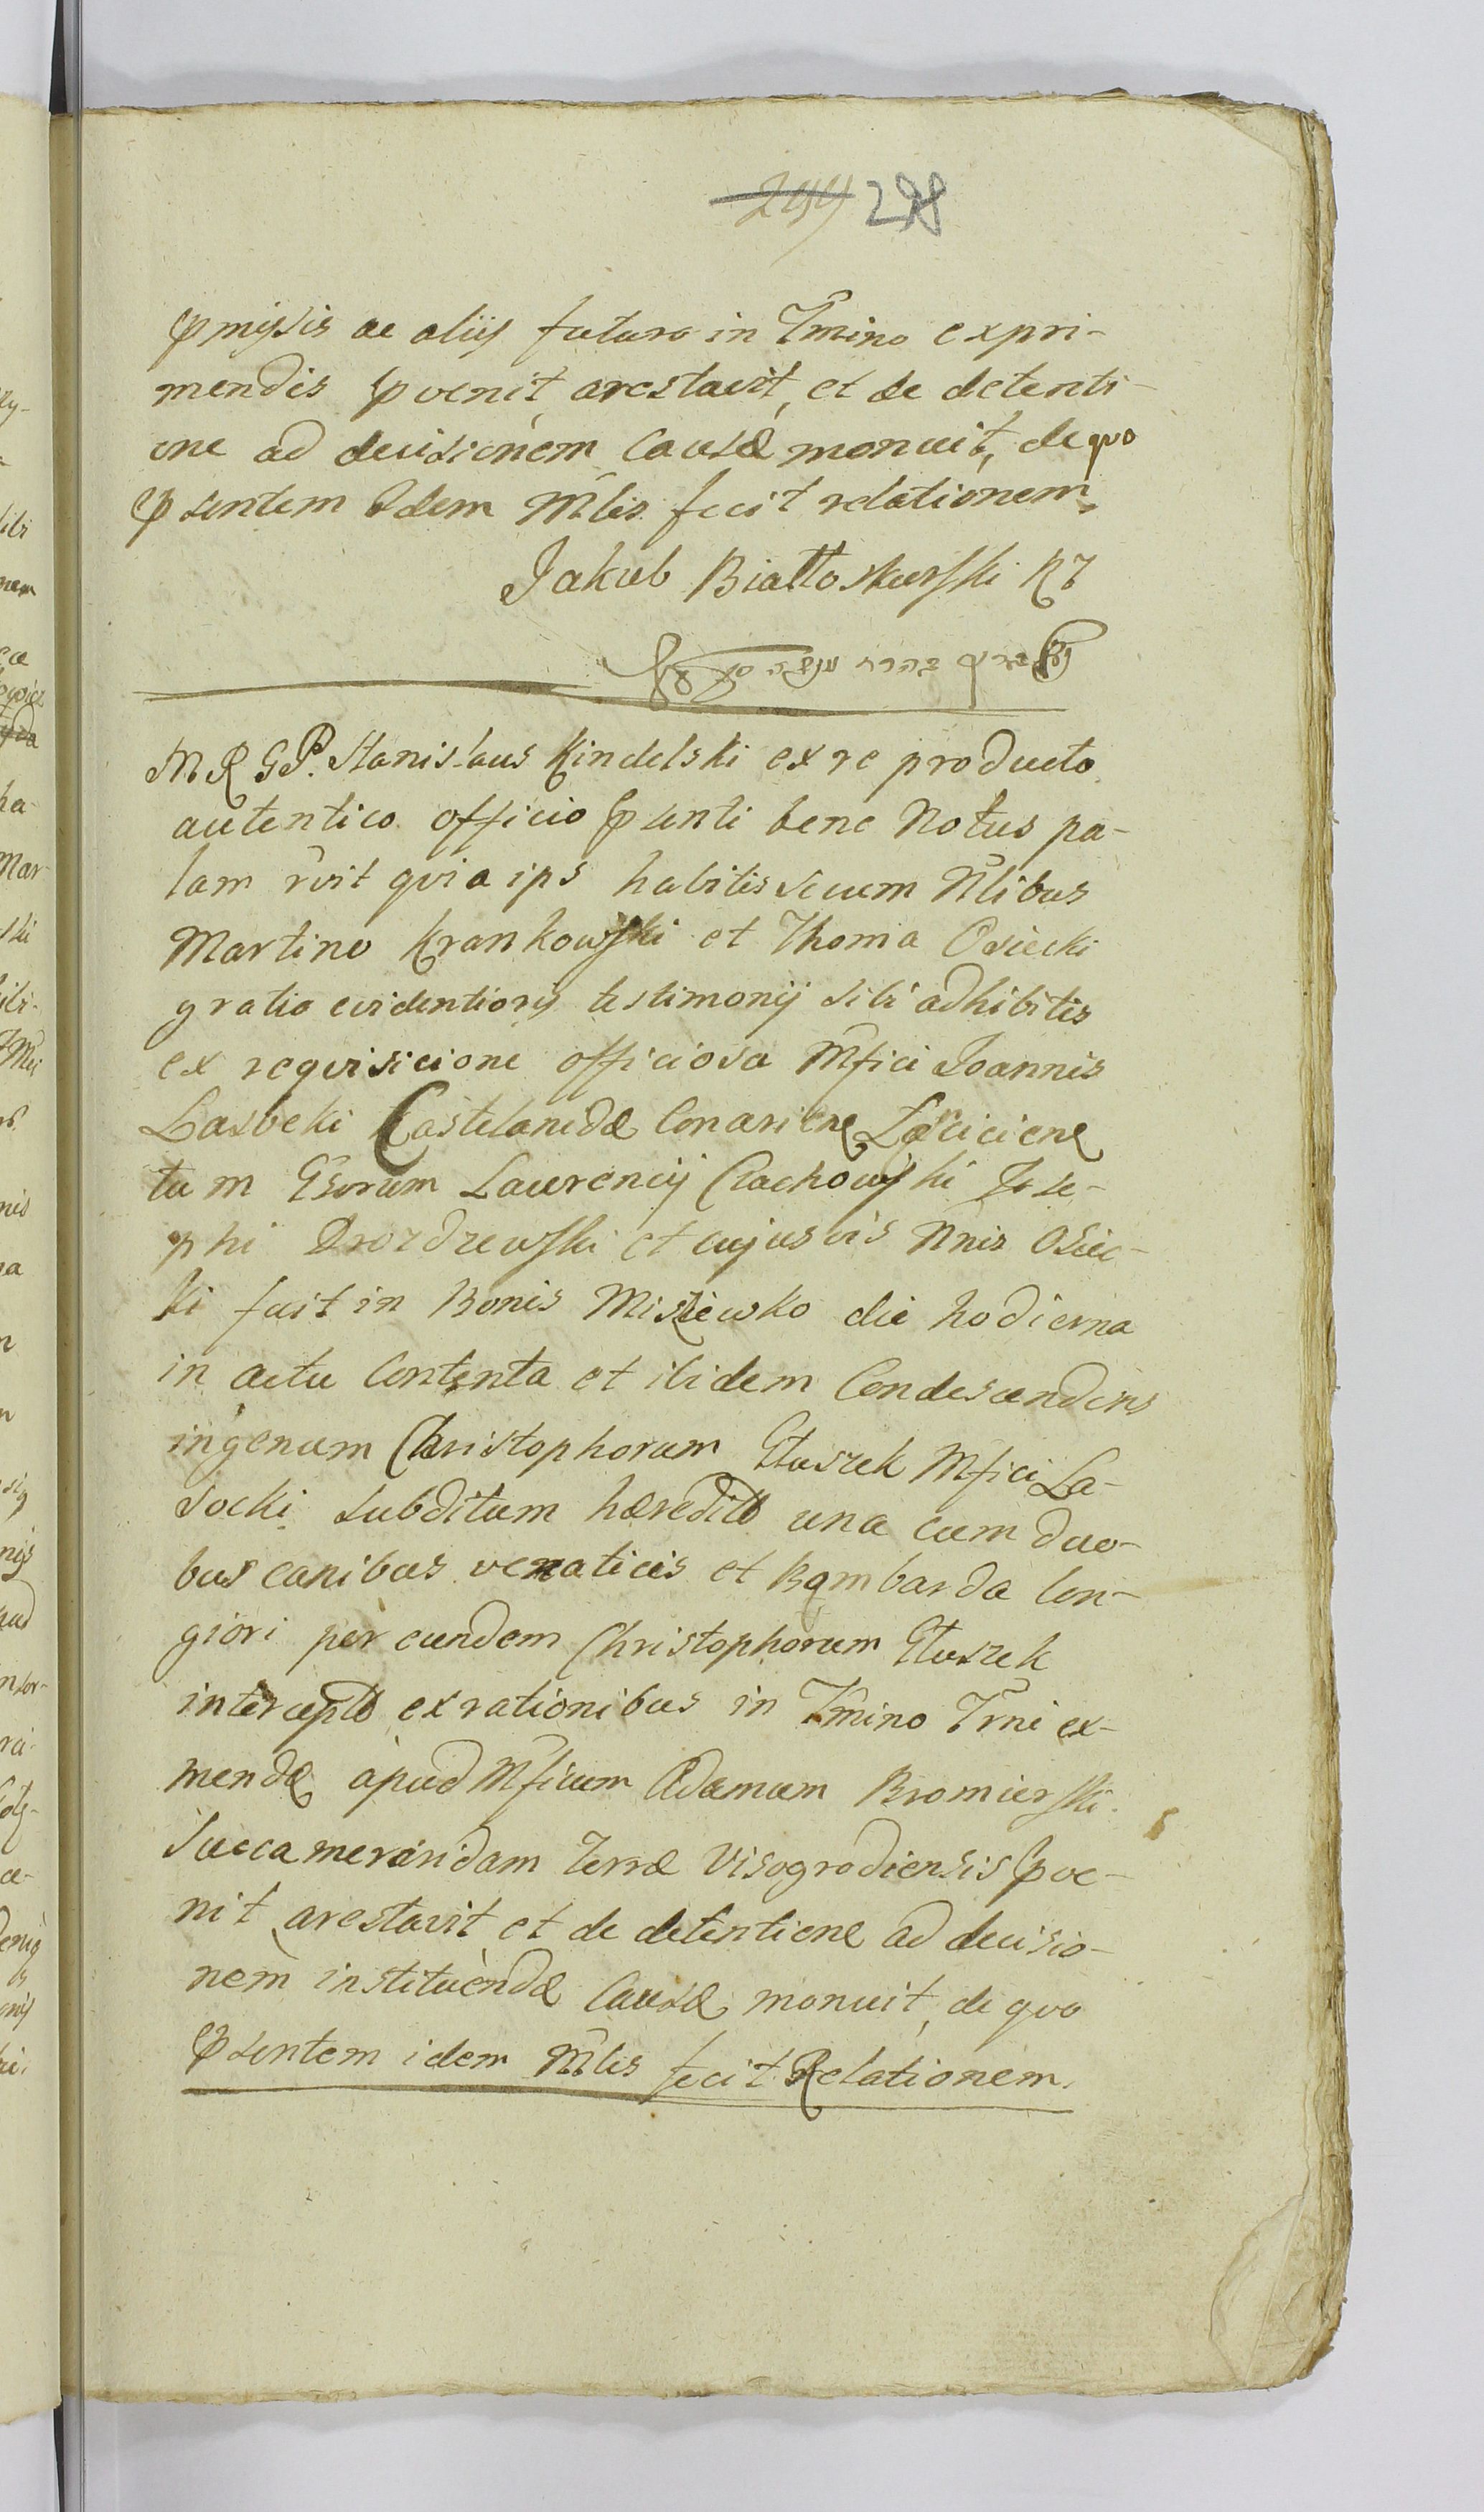 299 298
pmissis ac aliis futuro in Tmino expri-
mendis pvenit, arestavit, et de detenti-
one ad decisionem Causæ monuit, de quo
psentem Idem Mlis fecit relationem.
Jakub Białłoskurski RT
M R G P. Stanislaus Kindelski ex re producto
autentico officio psenti bene Notus pa-
lam rvit qvia ips habitis secum Nlibus
Martino Krankowski et Thoma Osiecki
gratia evidentioris testimonij sibi adhibitis
ex reqvisicione officiosa Mfici Joannis
Lasocki Castelanidæ Conariene Læciciene
tum Gsorum Laurencij Clachowski Jose-
phi Drozdzewski et cujusvis Nnis Osiec-
ki fuit in Bonis Miszewko die hodierna
in actu Contenta et ibidem Condescendens
ingenuum Christophorum Głuszek Mfici La-
socki subditum hæredit una cum duo-
bus canibus venaticis et Bombarda lon-
giori per eundem Christophorum Głuszek
intercept ex rationibus in Tmino Trni ex-
mendæ apud Mficum Adamum Bromierski
Succameraridam Terræ Visogrodiensis pve-
nit arestavit et de detentione ad decisio-
nem instituendæ Causæ monuit, de quo
psentem idem Mlis fecit Relationem.